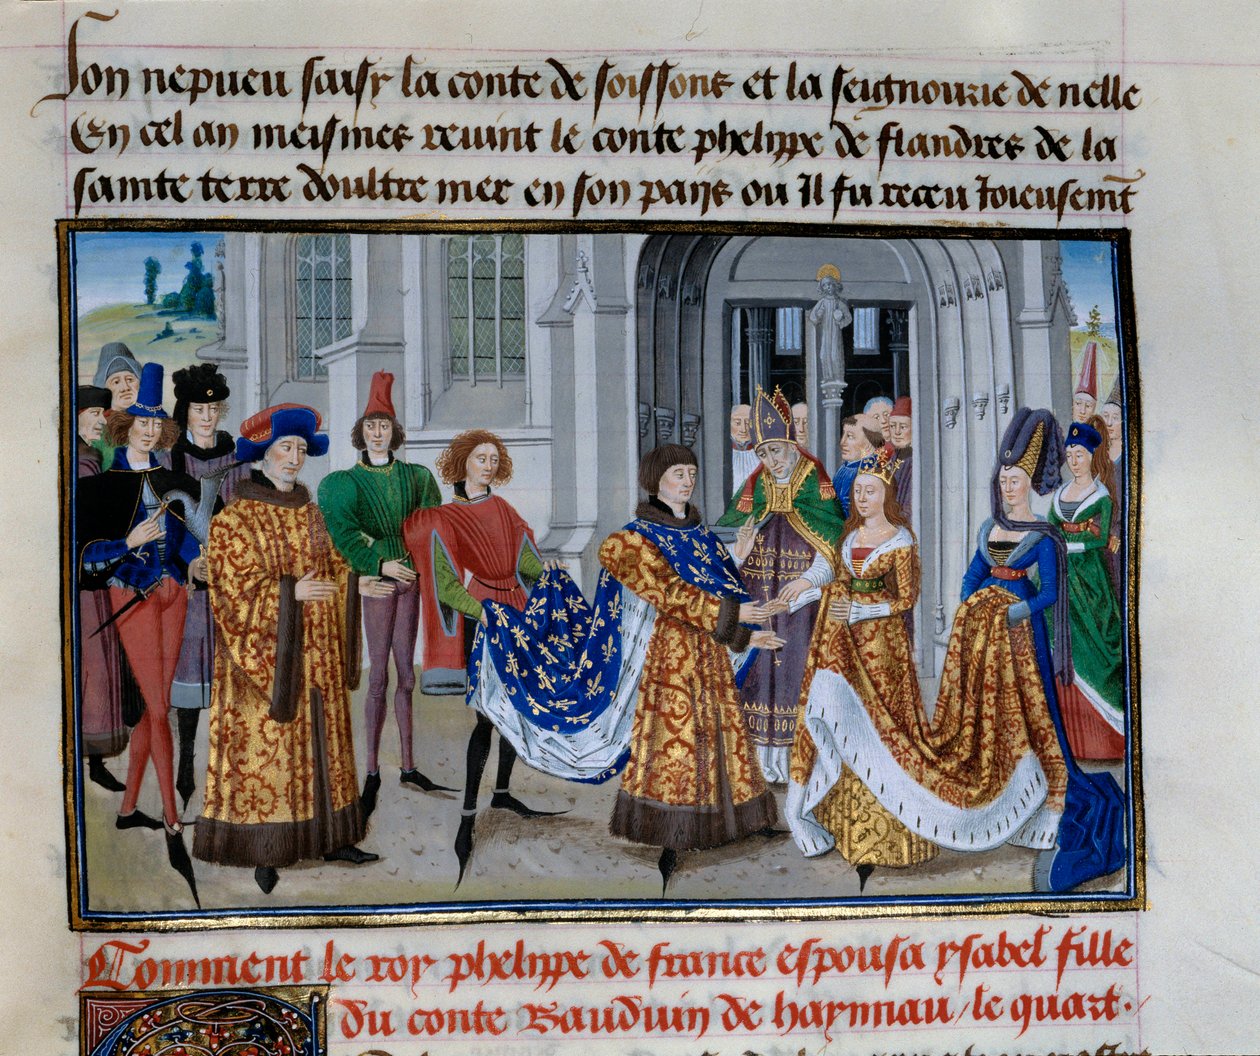 son nepueu saisy la conte de soissons et la seignourie de nelle
En cel an meismes reuint le conte phelippe de flandres de la
sainte terre doultre mer en son paijs ou Il fu receu Joieusemt
Comment le roy phelippe de france espousa ysabel fille
du conte Bauduin de haynnau / le quart.